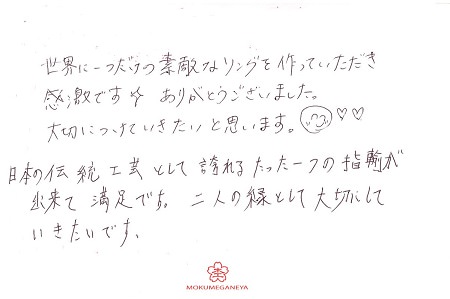 世界に一つだけの素敵なリングを作っていただき
感激です☆ ありがとうございました。
大切につけていきたいと思います。♡♡
日本の伝統工芸として誇れるたった一つの指輪が
出来て満足です。二人の縁として大切にして
いきたいです。
MOKUMEGANEYA